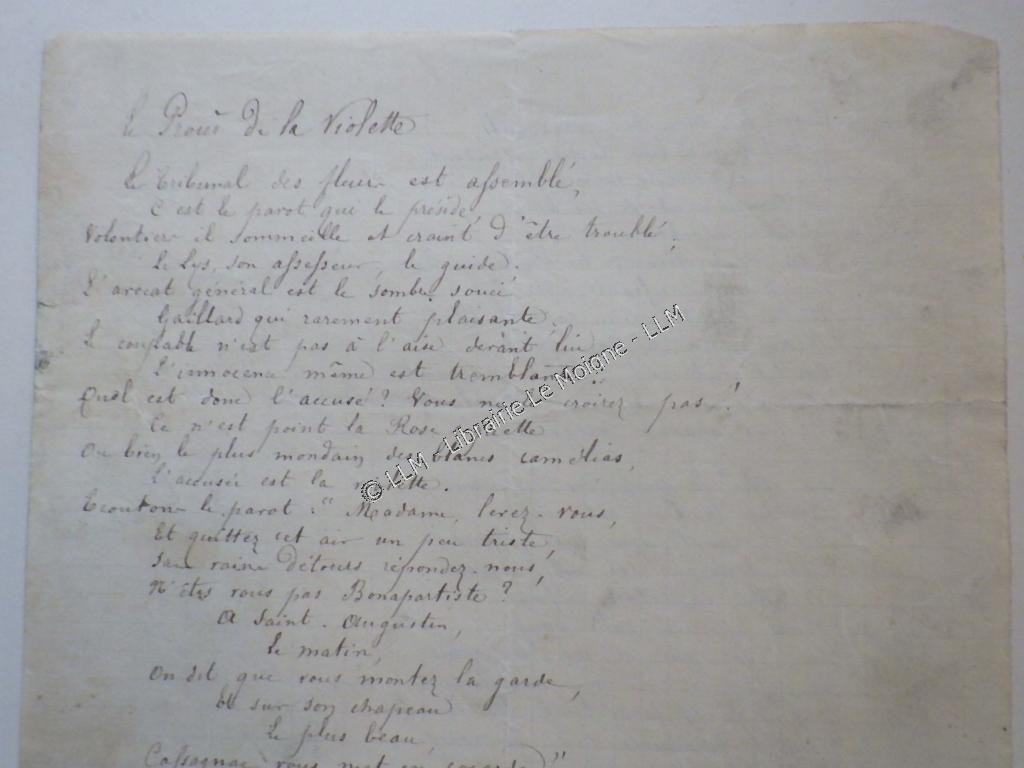 Le Procès de la Violette
Le Tribunal des fleurs est assemblé,
C'est le pavot qui le préside,
Volontiers il sommeille et craint d'être troublé,
Le Lys, son assesseur, le guide.
L'avocat général est le sombre souci
Gaillard qui rarement plaisante,
Le coupable n'est pas à l'aise devant lui
L'innocence même est tremblante.
Quel est donc l'accusé? Vous ne croirez pas!
Ce n'est point la Rose
Ou bien le plus mondain des blancs camélias,
L'accusée est la violette.
Ecoutons le pavot : "Madame, levez-vous,
Et quittez cet air un peu triste,
Sans vains détours répondez-nous,
N'êtes vous pas Bonapartiste?
A Saint-Augustin,
Le matin,
On dit que vous montez la garde,
Et sur son chapeau
Le plus beau,
Cassagnac vous met en cocarde"
© LLM - Librairie Le Moigne - LLM